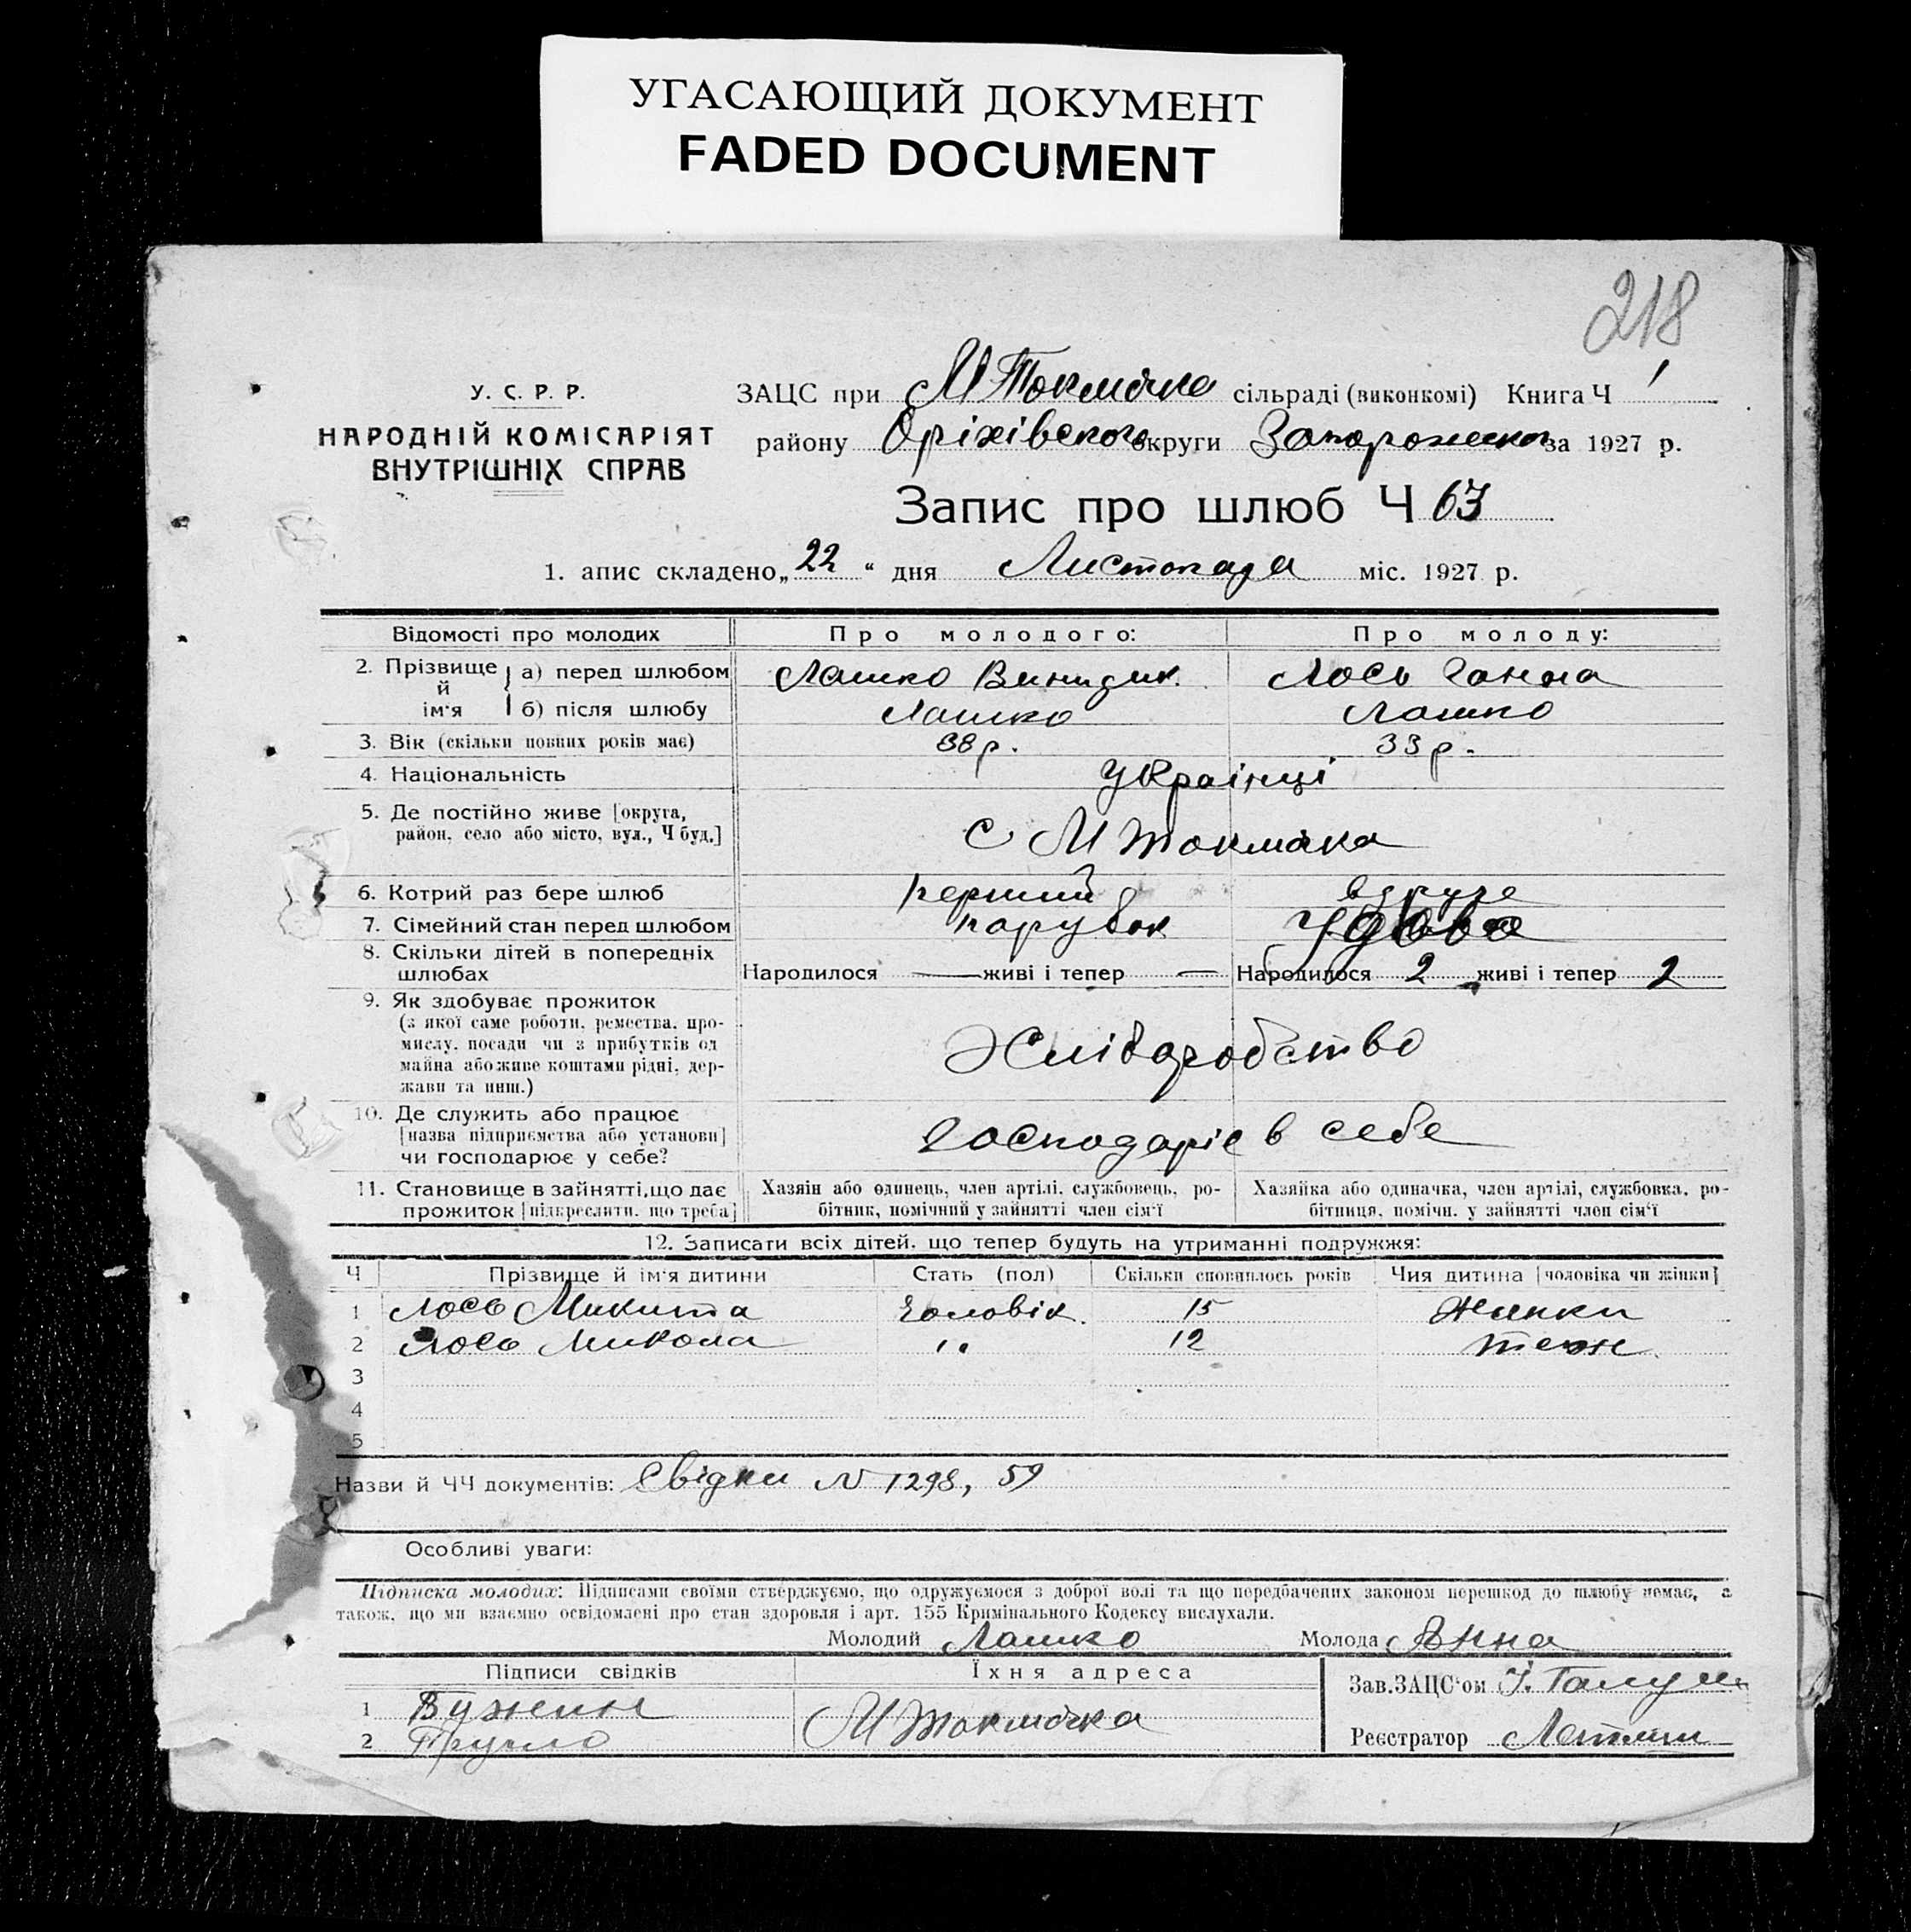 УГАСАЮЩИЙ ДОКУМЕНТ
FADED DOCUMENT
218
У. С. Р. Р.
НАРОДНІЙ КОМІСАРІЯТ
ВНУТРІШНІХ СПРАВ
ЗАЦС при М Токмачка сільраді (виконкомі) Книга Ч 1
району Оріхівського округи Запорожськ за 1927 р.
Запис про шлюб Ч 63
1. апис складено „22“ дня Листопада міс. 1927 р.
Відомості про молодих Про молодого: Про молоду:
2. Прізвище й ім'я а) перед шлюбом Лашко Винидик. Лось Ганна
б) після шлюбу Лашко Лашко
3. Вік (скільки повних років має) 38 р. 33 р.
4. Національність Українці
5. Де постійно живе [округа,
район, село або місто, вул., Ч буд.] С М Токмачка
6. Котрий раз бере шлюб перший вдруге
7. Сімейний стан перед шлюбом парубок Удова
8. Скільки дітей в попередніх
шлюбах Народилося — живі і тепер — Народилося 2 живі і тепер 2
9. Як здобуває прожиток
(з якої саме роботи, ремества, про-
мислу, посади чи з прибутків од
майна або живе коштами рідні, дер-
жави та инш.) Хліборобство
10. Де служить або працює
[назва підприємства або установи]
чи господарює у себе? Господаріє в себе
11. Становище в зайнятті, що дає
прожиток [підкреслити, що треба]
Хазяін або одинець, член артілі, службовець, ро-
бітник, помічний у зайнятті член сім'ї
Хазяйка або одиначка, член артілі, службовка, ро-
бітниця, помічн. у зайнятті член сім'ї
12. Записати всіх дітей, що тепер будуть на утриманні подружжя:
Ч Прізвище й ім'я дитини Стать (пол) Скільки сповнилось років Чия дитина [чоловіка чи жінки]
1 Лось Микита Чоловік. 15 Жинки
2 Лось Микола " 12 теж
3
4
5
Назви й ЧЧ документів: Свідки N 1298, 59
Особливі уваги:
Підписка молодих: Підписами своїми стверджуємо, що одружуємося з доброї волі та що передбачених законом перешкод до шлюбу немає, а
також, що ми взаємно освідомлені про стан здоровля і арт. 155 Кримінального Кодексу вислухали.
Молодий Лашко Молода Анна
Підписи свідків Їхня адреса
1 Бужин М Токмачка
2
Зав. ЗАЦС'ом
Реєстратор